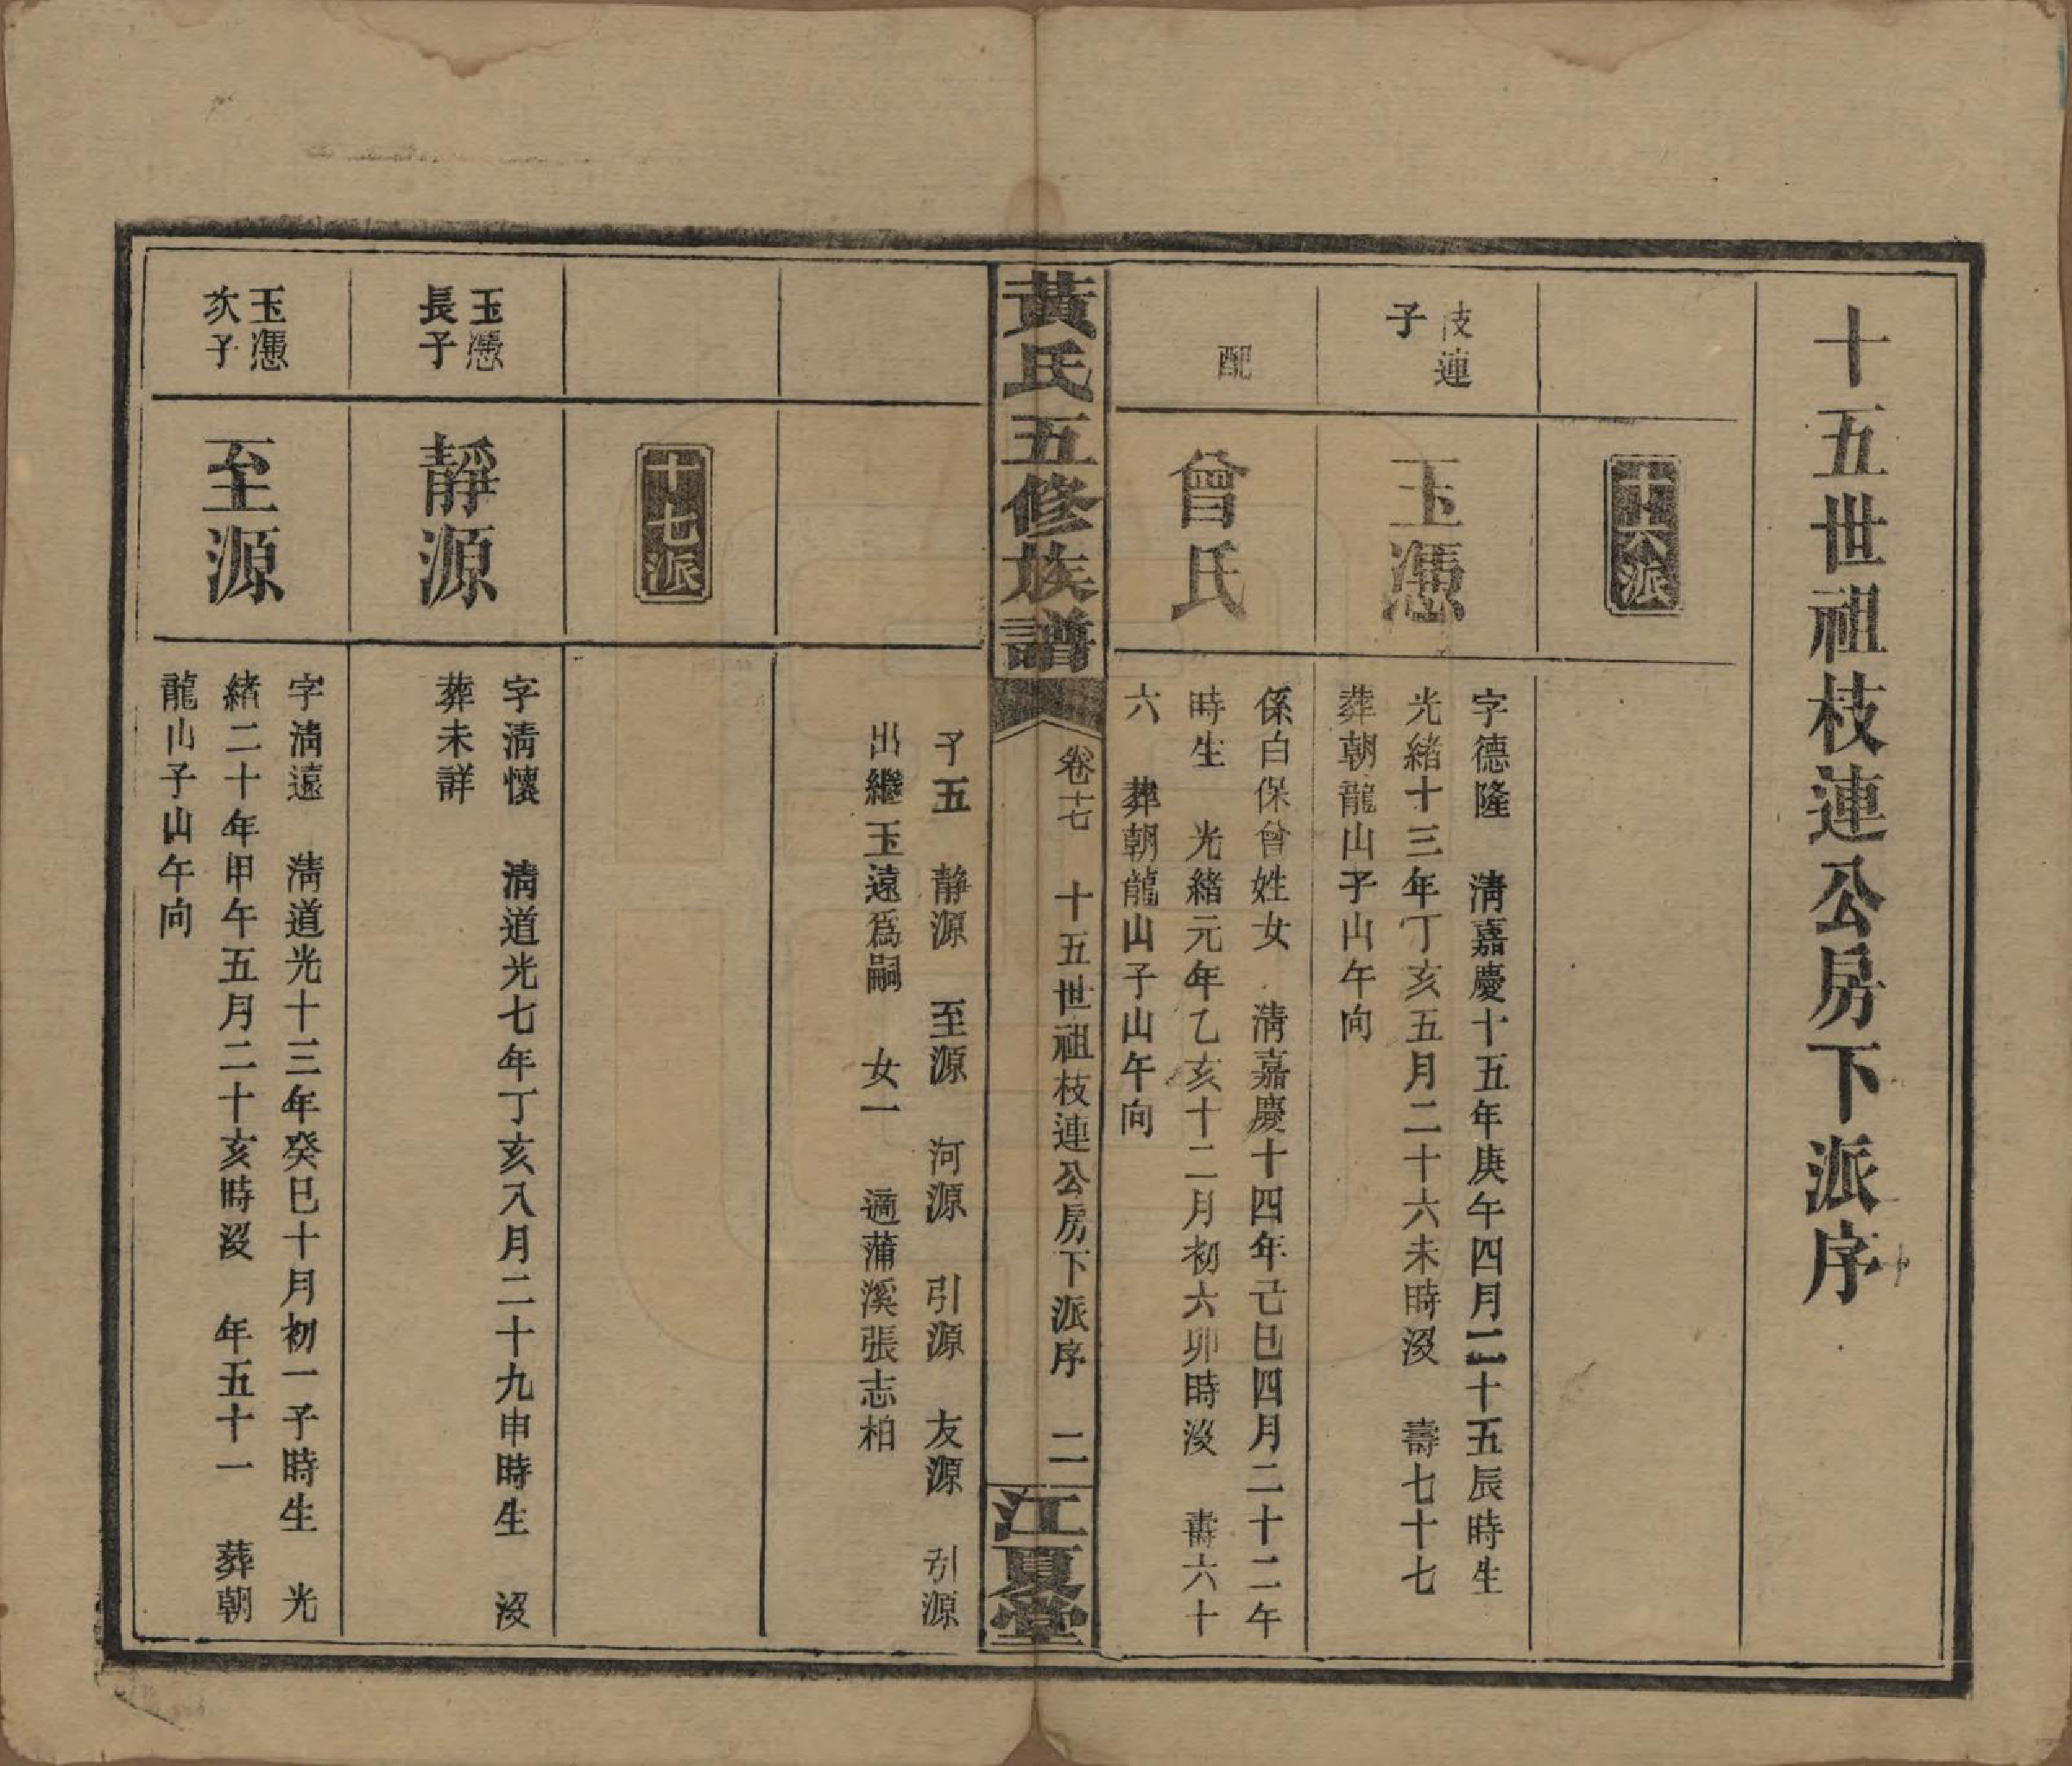 十五世祖枝連公房下派序
十六派
枝連
子
玉慿
字德隆 淸嘉慶十五年庚午四月二十五辰時生
光緒十三年丁亥五月二十六未時沒 壽七十七
葬朝龍山子山午向
配
曾氏
係白保曾姓女 淸嘉慶十四年己巳四月二十二午
時生 光緒元年乙亥十二月初六卯時沒 壽六十
六 葬朝龍山子山午向
黃氏五修族譜
卷十七 十五世祖枝連公房下派序 二
江夏堂
子五 靜源 至源 河源 引源 友源 引源
出繼玉遠爲嗣 女一 適蒲溪張志柏
十七派
玉慿
長子
靜源
字淸懷 淸道光七年丁亥八月二十九申時生 沒
葬未詳
玉慿
次子
至源
字淸遠 淸道光十三年癸巳十月初一子時生 光
緒二十年甲午五月二十亥時沒 年五十一 葬朝
龍山子山午向